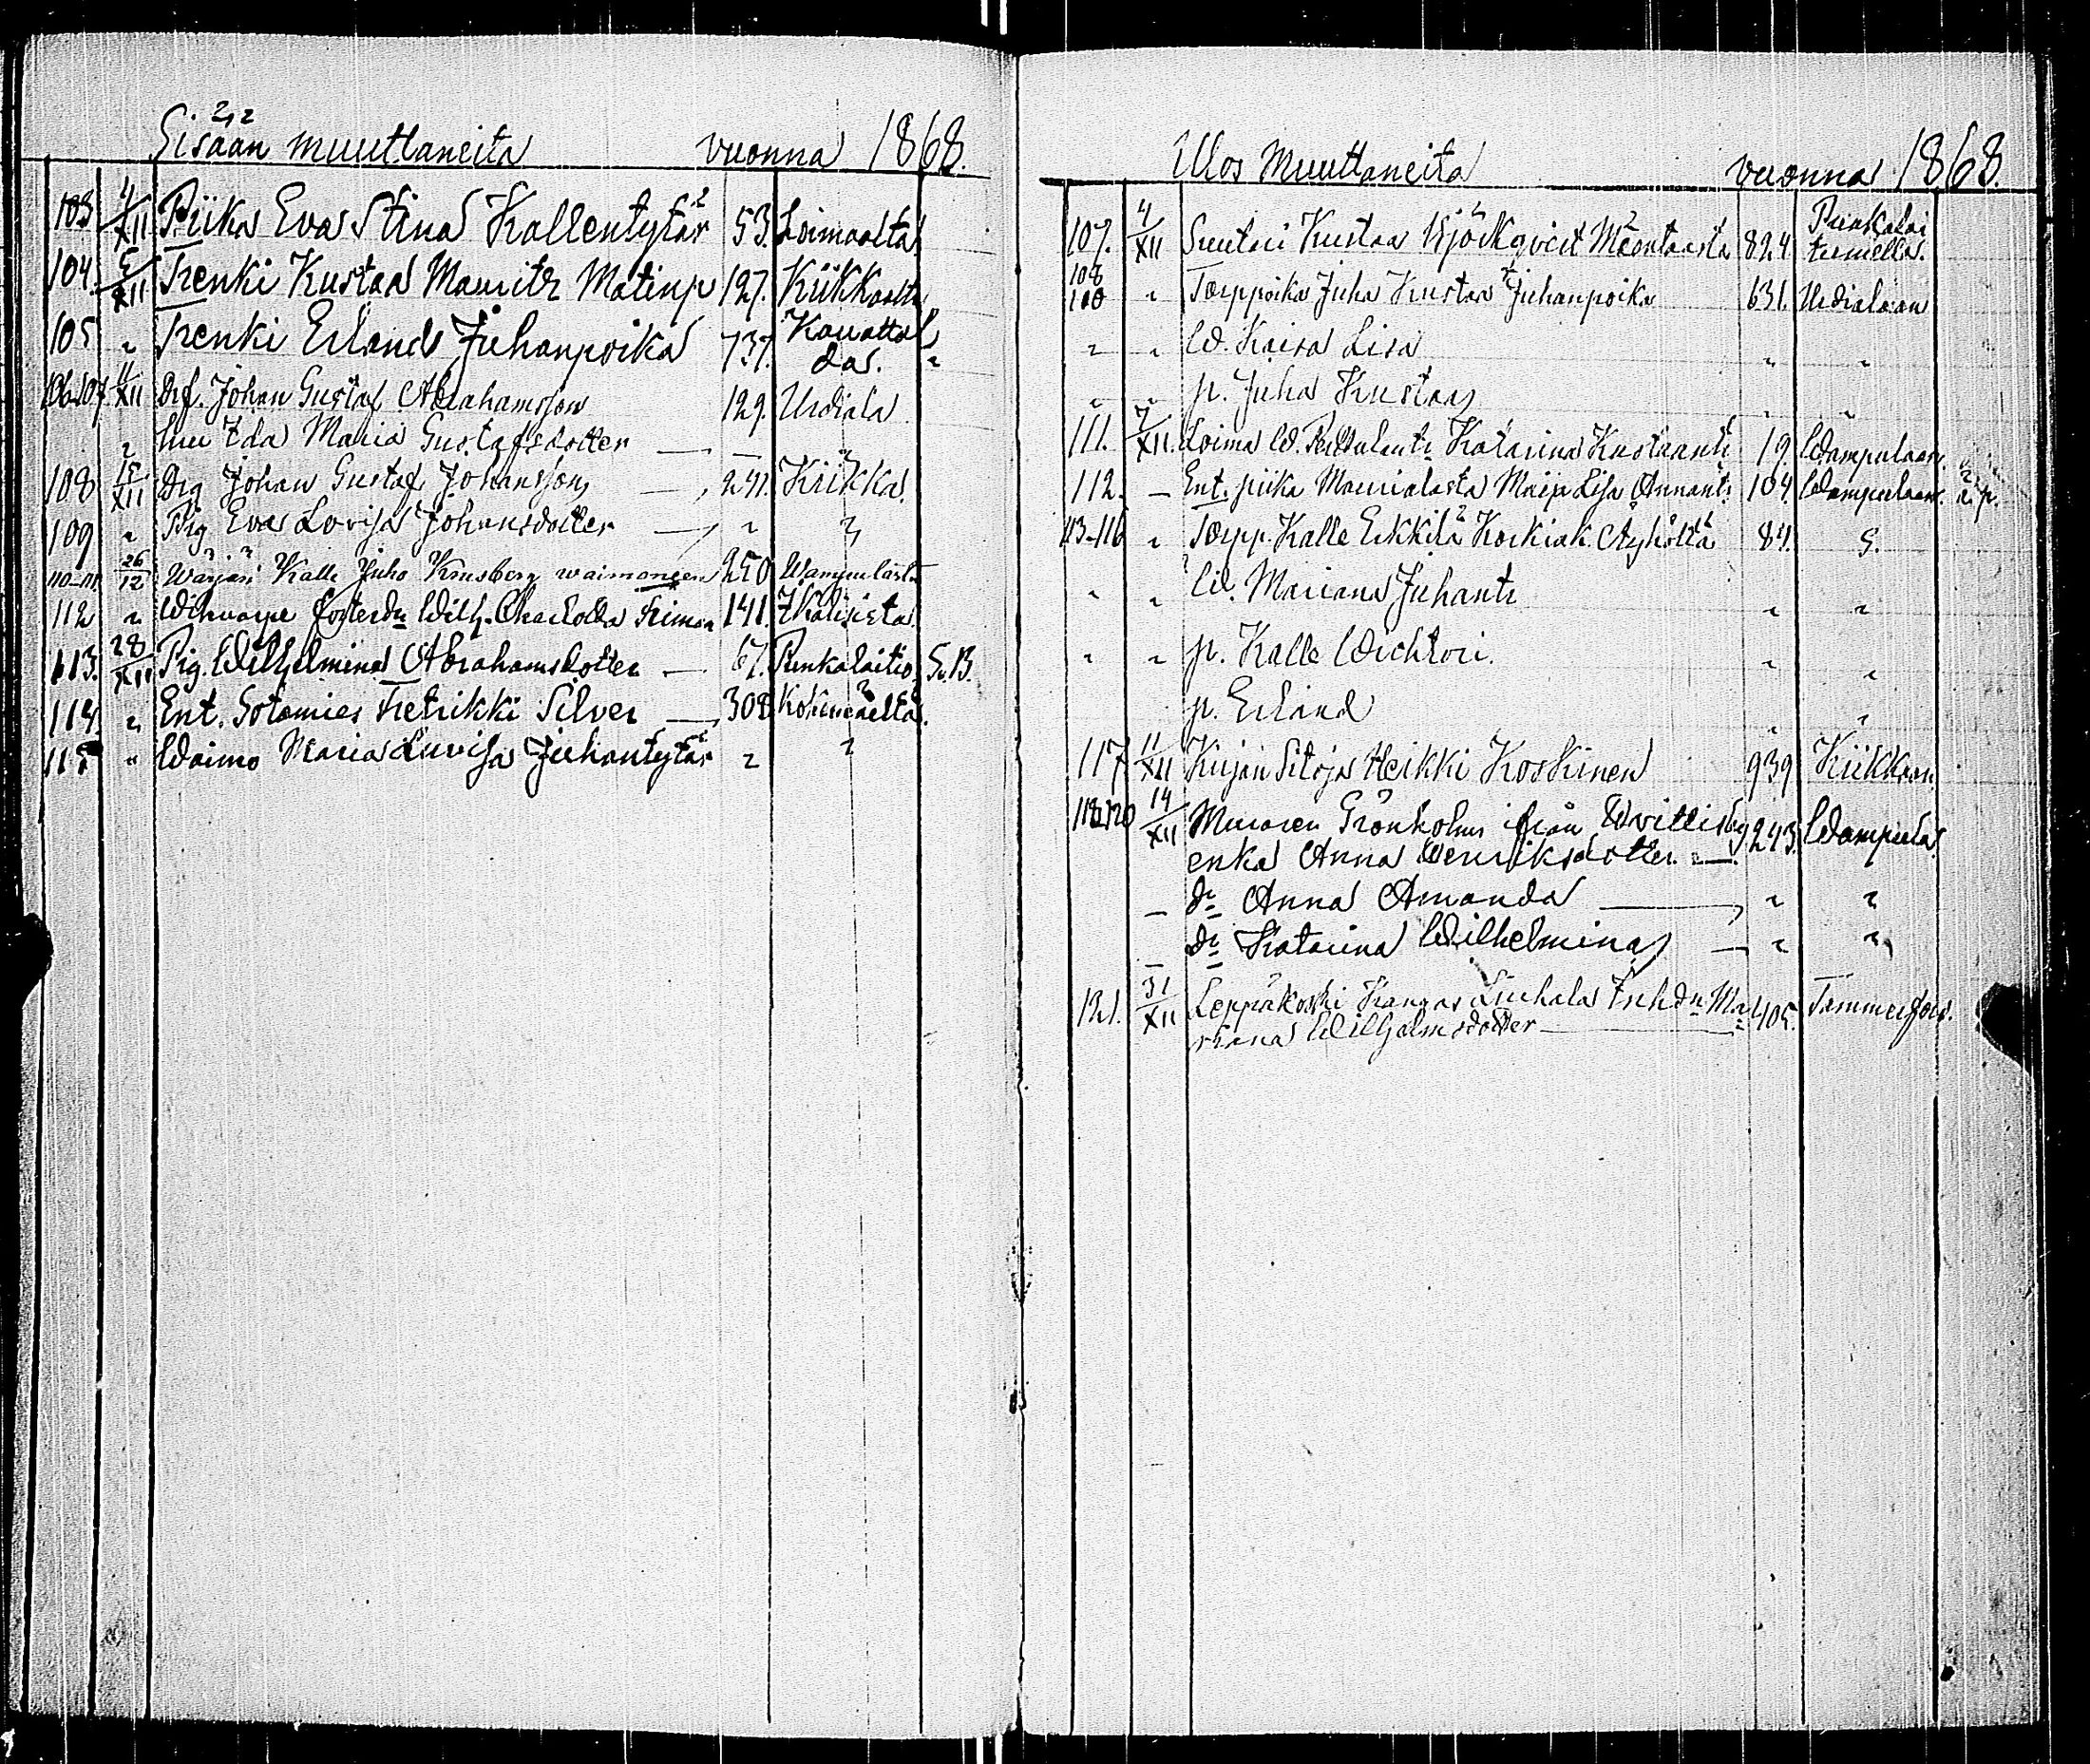 Sisään muuttaneita vuonna 1868.
103 4/XII Piika Eva Stina Kallentytär 53. Loimaalta
104. 5/XII Renki Kustaa Mauritz Matinp 127. Kiikkaalta
105 " Renki Erland Juhanpoika 737.
106-107 11/XII Drg. Johan Gustaf Abrahamsson 129. Urdiala
" hu Ida Maria Gustafsdotter — — "
108 15/XII Drg Johan Gustaf Johansson — 241. Kiikka
109 " Pig Eva Lovisa Johansdotter — " "
110-111 26/12 Wärjäri Kalle Juho Krusberg waimoneen 250 Wampulasta
112 " fosterdr Wilh. Charlotta 141. Ikalisista
113. 28/XII Pig. Wilhelmina Abrahamsdotter — 67. Punkalaitio S. B.
114. " Ent. Sotamies Fretrikki Silver — 308 Kokemäeltä.
115 " Waimo Maria Luvisa Juhantytär " "
Ulos Muuttaneita vuonna 1868.
107. 4/XII Suutari Kustaa Björkqvist 824 Punkalai
tumella.
108
110 " Torppoika Juha Kustaa Juhanpoika 631. Urdialaan
" " W. Kaisa Lisa " "
" " p. Juha Kustaa " "
111. 7/XII. Loima W. Katarina Kustaant. 19. Wampulaan.
112. — Ent. piika Maurialasta Maija Lisa Annant. 104. Wampulaan.
113-116 " Torpp. Kalle Erkkilä Korkiak. 84. S.
" " W. Mariana Juhant. " "
" " p. Kalle Wichtori. " "
p. Erland " "
117 11/XII Kirjan Sitoja Heikki Koskinen 939 Kiikkaan
118-120 14/XII Muraren Grönholms ifrån Wvittisby 243. Wampula
enka Anna Henriksdotter —
— dr Anna Amanda — " "
— dr Katarina Wilhelmina — " "
121. 31/XII Leppäkoski Kangas Liuhala Inhdr Ma- 405. Tammerfors.
riana Wilhelmsdotter —